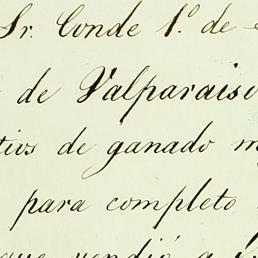 Sr. Conde 1.º de
de Valparaiso
tivos de ganado
para completo
que vendió á